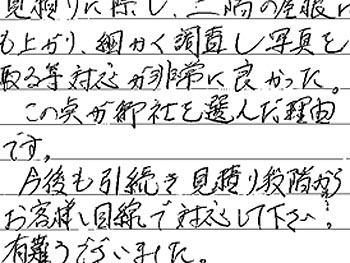 見積りに際し、二階の屋根に
も上がり、細かく調査し写真を
取る等対応が非常に良かった。
この点が御社を選んだ理由
です。
今後も引続き見積り段階から
お客様目線で対応して下さい。
有難うございました。